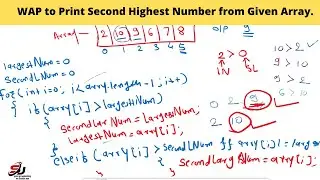 WAP to Print Second Highest Number from Given Array.
Array
2 10 9 6 7 8 4
O/P 9
0 1 2 3 4 5
largestNum = 0
secondLNum = 0
2 > 0
IN SL
10 > 2
9 > 2
6 > 10
for(int i=0; i<array.length-1; i++)
{ if(array[i]>largestNum)
0 2 9
2 10
{ secondLarNum = largestNum;
largestNum = array[i];
else if (array[i] > secondLNum && array[i] !=
SecondLargNum = array[i];